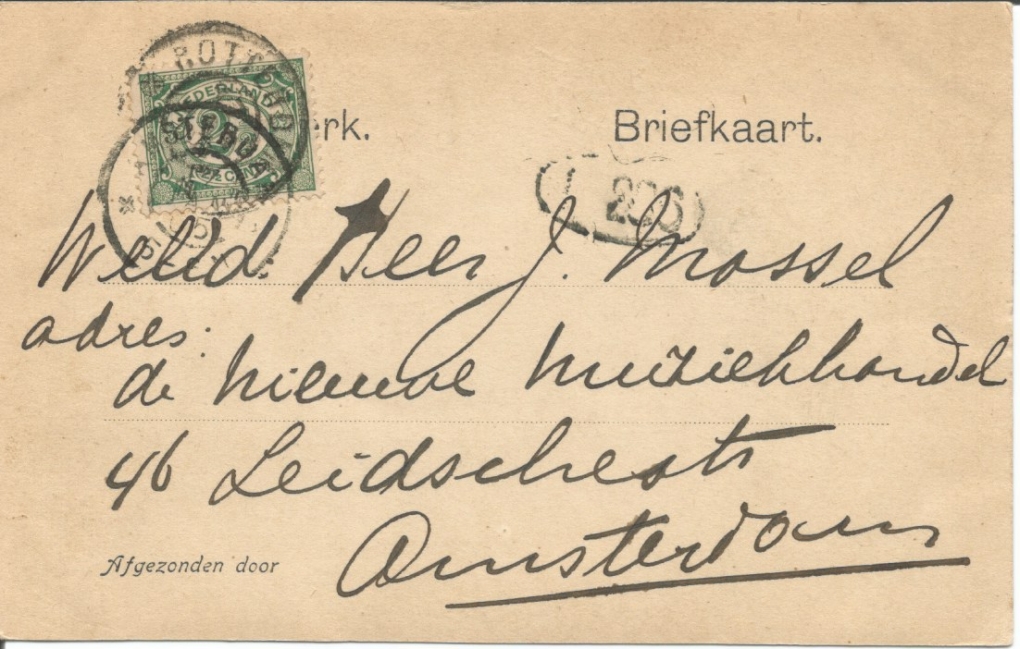 ROTTERDAM
NEDERLAND
2½ CENT
rk. Briefkaart.
226
WelEd Heer J. Mossel
adres:
de Nieuwe Muziekhandel
46 Leidschestr
Amsterdam
Afgezonden door